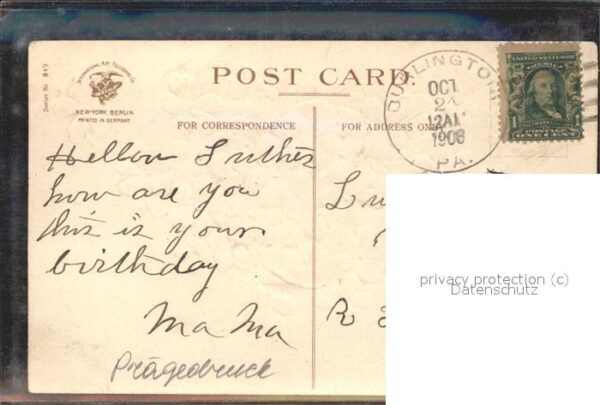 Series No. 849
INTERNATIONAL ART PUBLISHING Co.
NEW-YORK BERLIN
PRINTED IN GERMANY
POST CARD.
FOR CORRESPONDENCE
FOR ADDRESS ONLY
BURLINGTON
OCT
24
12AM
1908
PA.
UNITED STATES OF AMERICA
1 1
POSTAGE
ONE CENT
Hellow Luther
how are you
this is your
birthday
Ma Ma
Prägedruck
Lu
R
privacy protection (c)
Datenschutz